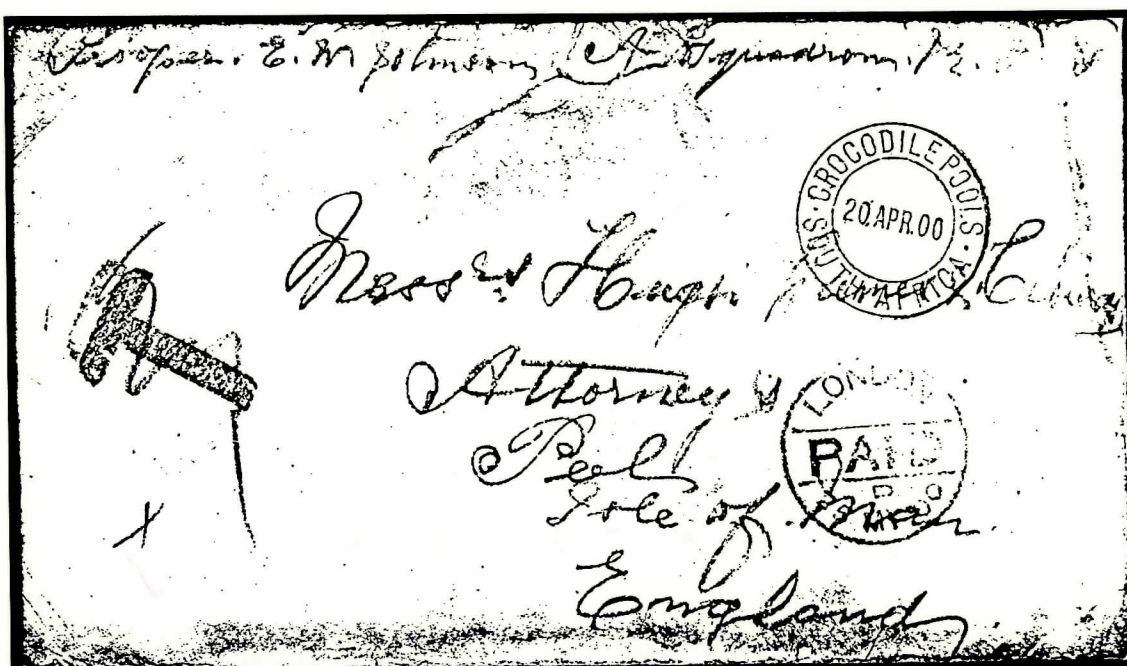 Trooper. E. M Johnson, A Squadron.
CROCODILE POOLS · SOUTH AFRICA ·
20.APR.00
Messrs Hugh
Attorneys
LONDON
PAID
Peel
Isle of Man.
England
X